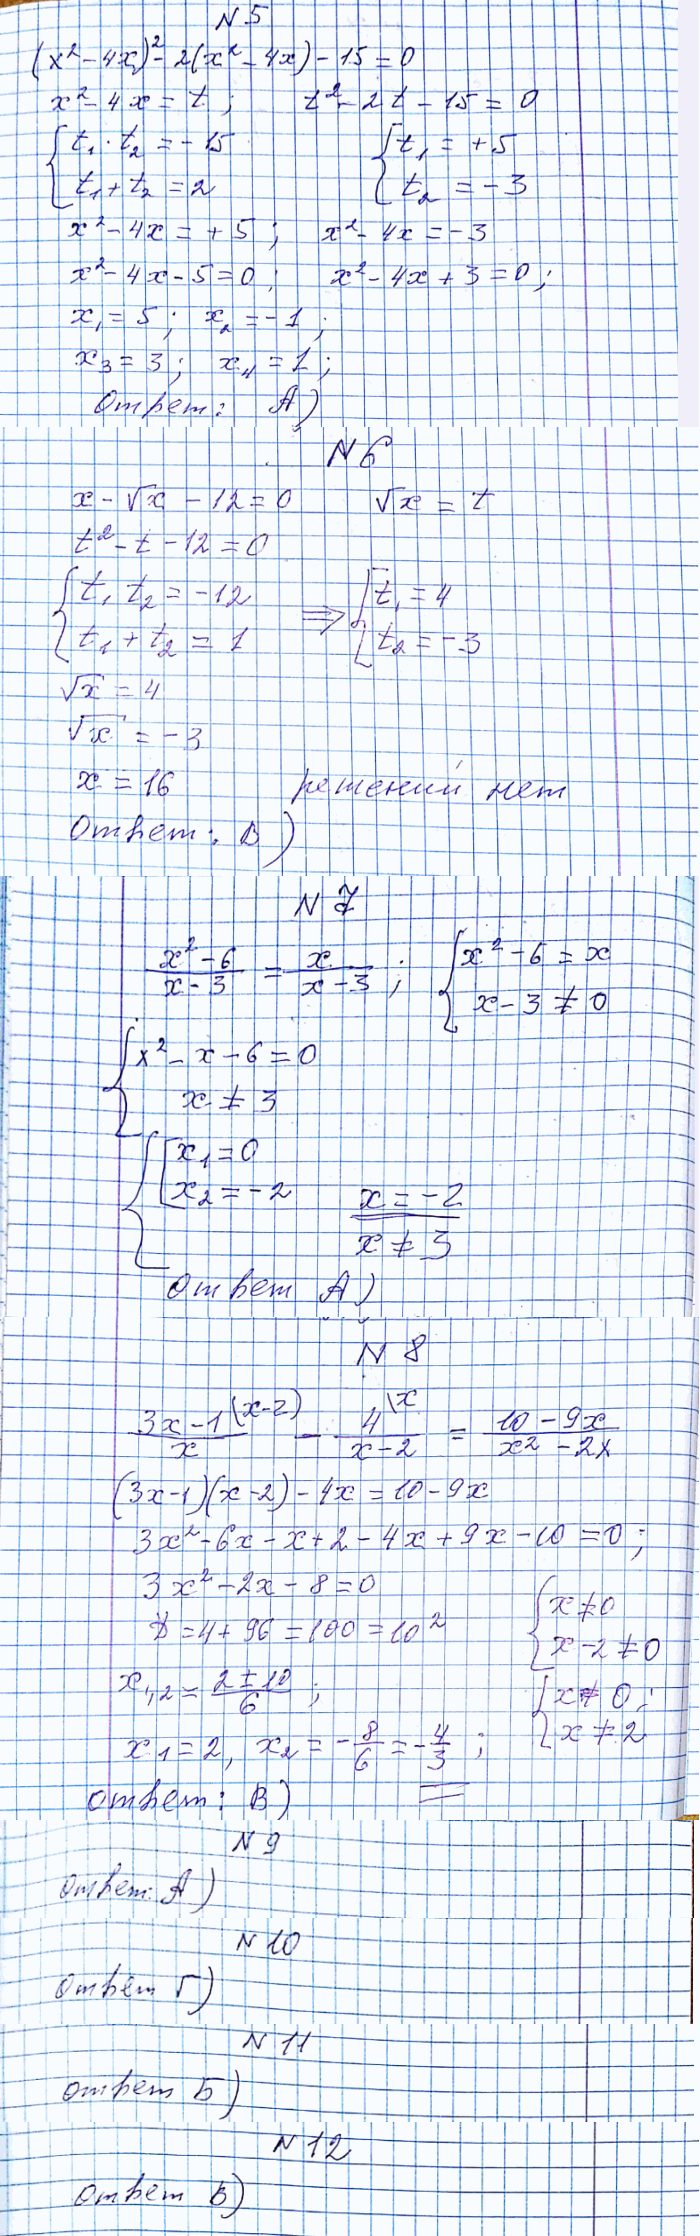 N 5
(x² - 4x)² - 2(x² - 4x) - 15 = 0
x² - 4x = t ; t² - 2t - 15 = 0
{ t₁ · t₂ = -15 { t₁ = +5
{ t₁ + t₂ = 2 { t₂ = -3
x² - 4x = +5 ; x² - 4x = -3
x² - 4x - 5 = 0 ; x² - 4x + 3 = 0 ;
x₁ = 5 ; x₂ = -1 ;
x₃ = 3 ; x₄ = 1 ;
Ответ: А)
N 6
x - √x - 12 = 0 √x = t
t² - t - 12 = 0
{ t₁ t₂ = -12 ⇒ [ t₁ = 4
{ t₁ + t₂ = 1 [ t₂ = -3
√x = 4
√x = -3
x = 16 решений нет
Ответ: В)
N 7
(x² - 6)/(x - 3) = x/(x - 3) ; { x² - 6 = x
{ x - 3 ≠ 0
{ x² - x - 6 = 0
{ x ≠ 3
{ [ x₁ = 0
[ x₂ = -2 x = -2
x ≠ 3
Ответ А)
N 8
(3x - 1)/x \(x-2) - 4/(x - 2) \x = (10 - 9x)/(x² - 2x)
(3x-1)(x-2) - 4x = 10 - 9x
3x² - 6x - x + 2 - 4x + 9x - 10 = 0 ;
3x² - 2x - 8 = 0
{ x ≠ 0
D = 4 + 96 = 100 = 10² { x - 2 ≠ 0
x₁,₂ = (2 ± 10)/6 ; { x ≠ 0 ;
{ x ≠ 2
x₁ = 2, x₂ = -8/6 = -4/3 ;
Ответ: В)
N 9
Ответ: А)
N 10
Ответ Г)
N 11
Ответ Б)
N 12
Ответ Б)